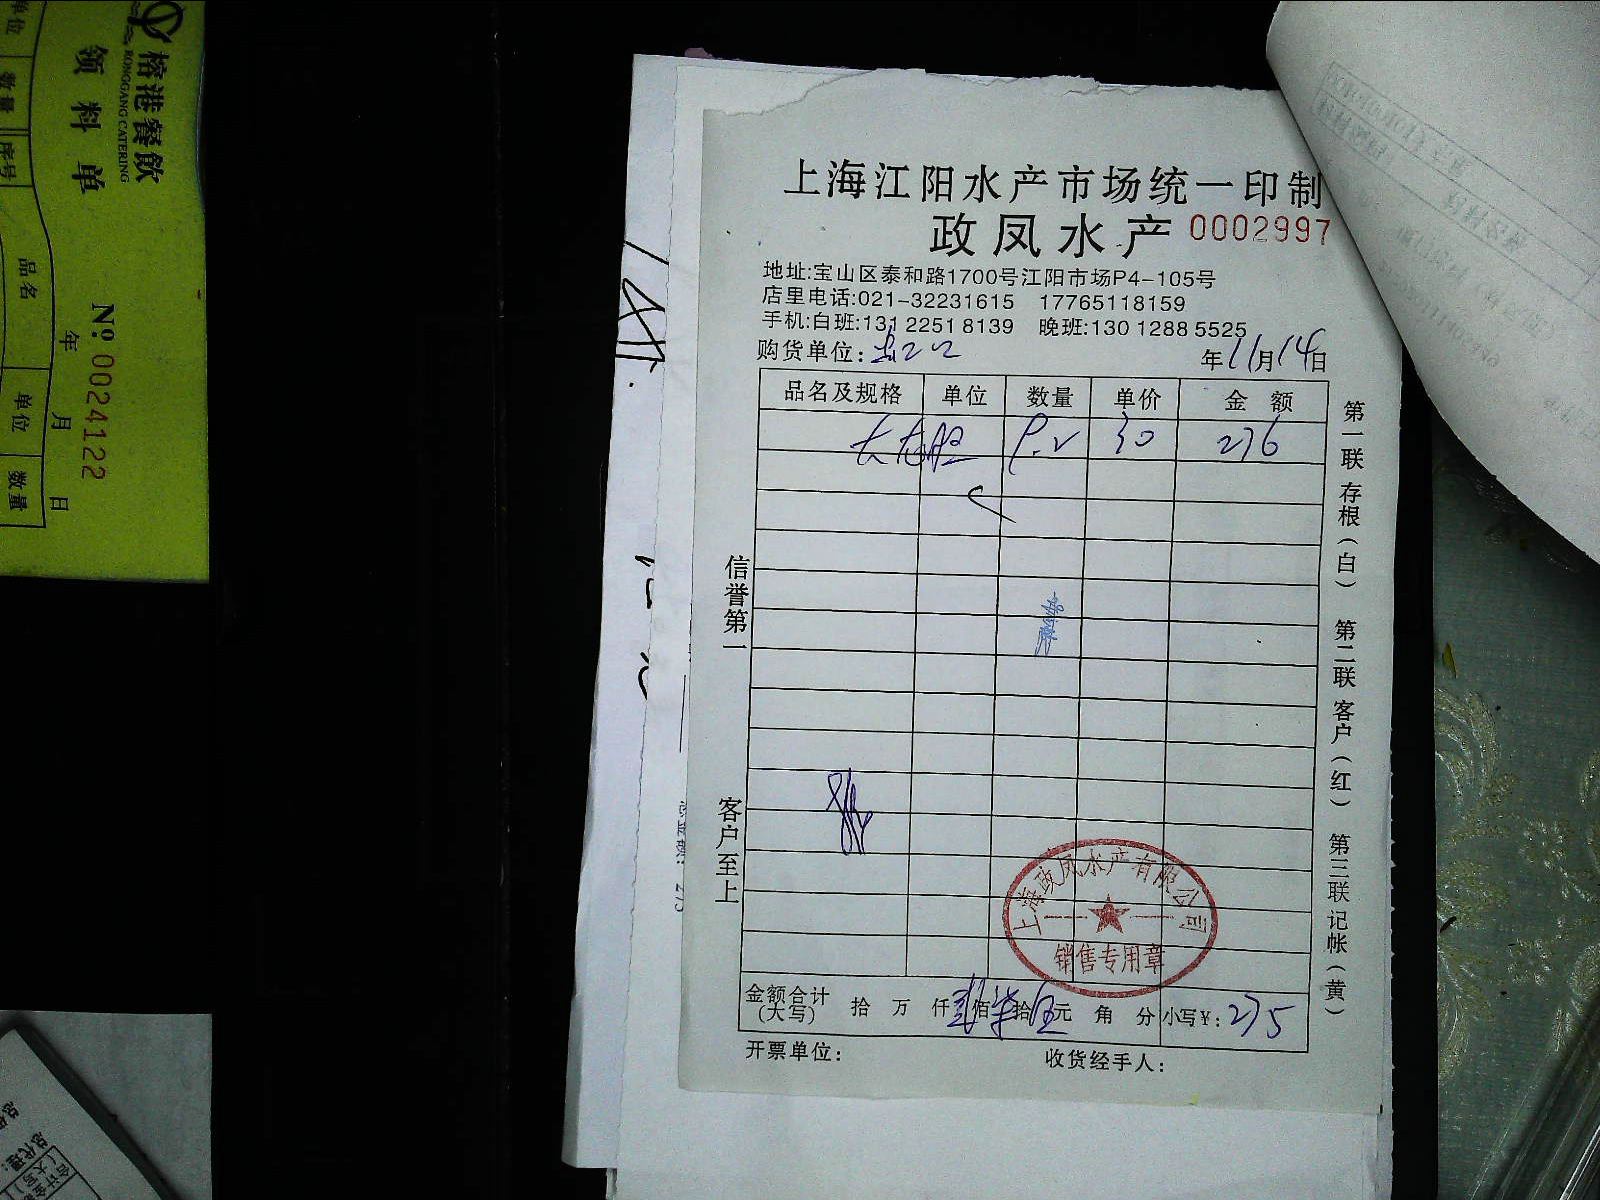 上海江阳水产市场统一印制
政凤水产 0002997
地址:宝山区泰和路1700号江阳市场P4-105号
店里电话:021-32231615 17765118159
手机:白班:131 2251 8139 晚班:130 1288 5525
购货单位: 年11月14日
品名及规格 单位 数量 单价 金额
9.2 30 276
信誉第一
客户至上
第一联 存根(白) 第二联 客户(红) 第三联 记帐(黄)
上海政凤水产有限公司
销售专用章
金额合计(大写) 拾 万 仟 贰佰柒拾伍元 角 分 小写¥: 275
开票单位: 收货经手人:
榕港餐飲
RONGGANG CATERING
领料单
№ 0024122
年 月 日
序号 品名 单位 数量
单位 数量